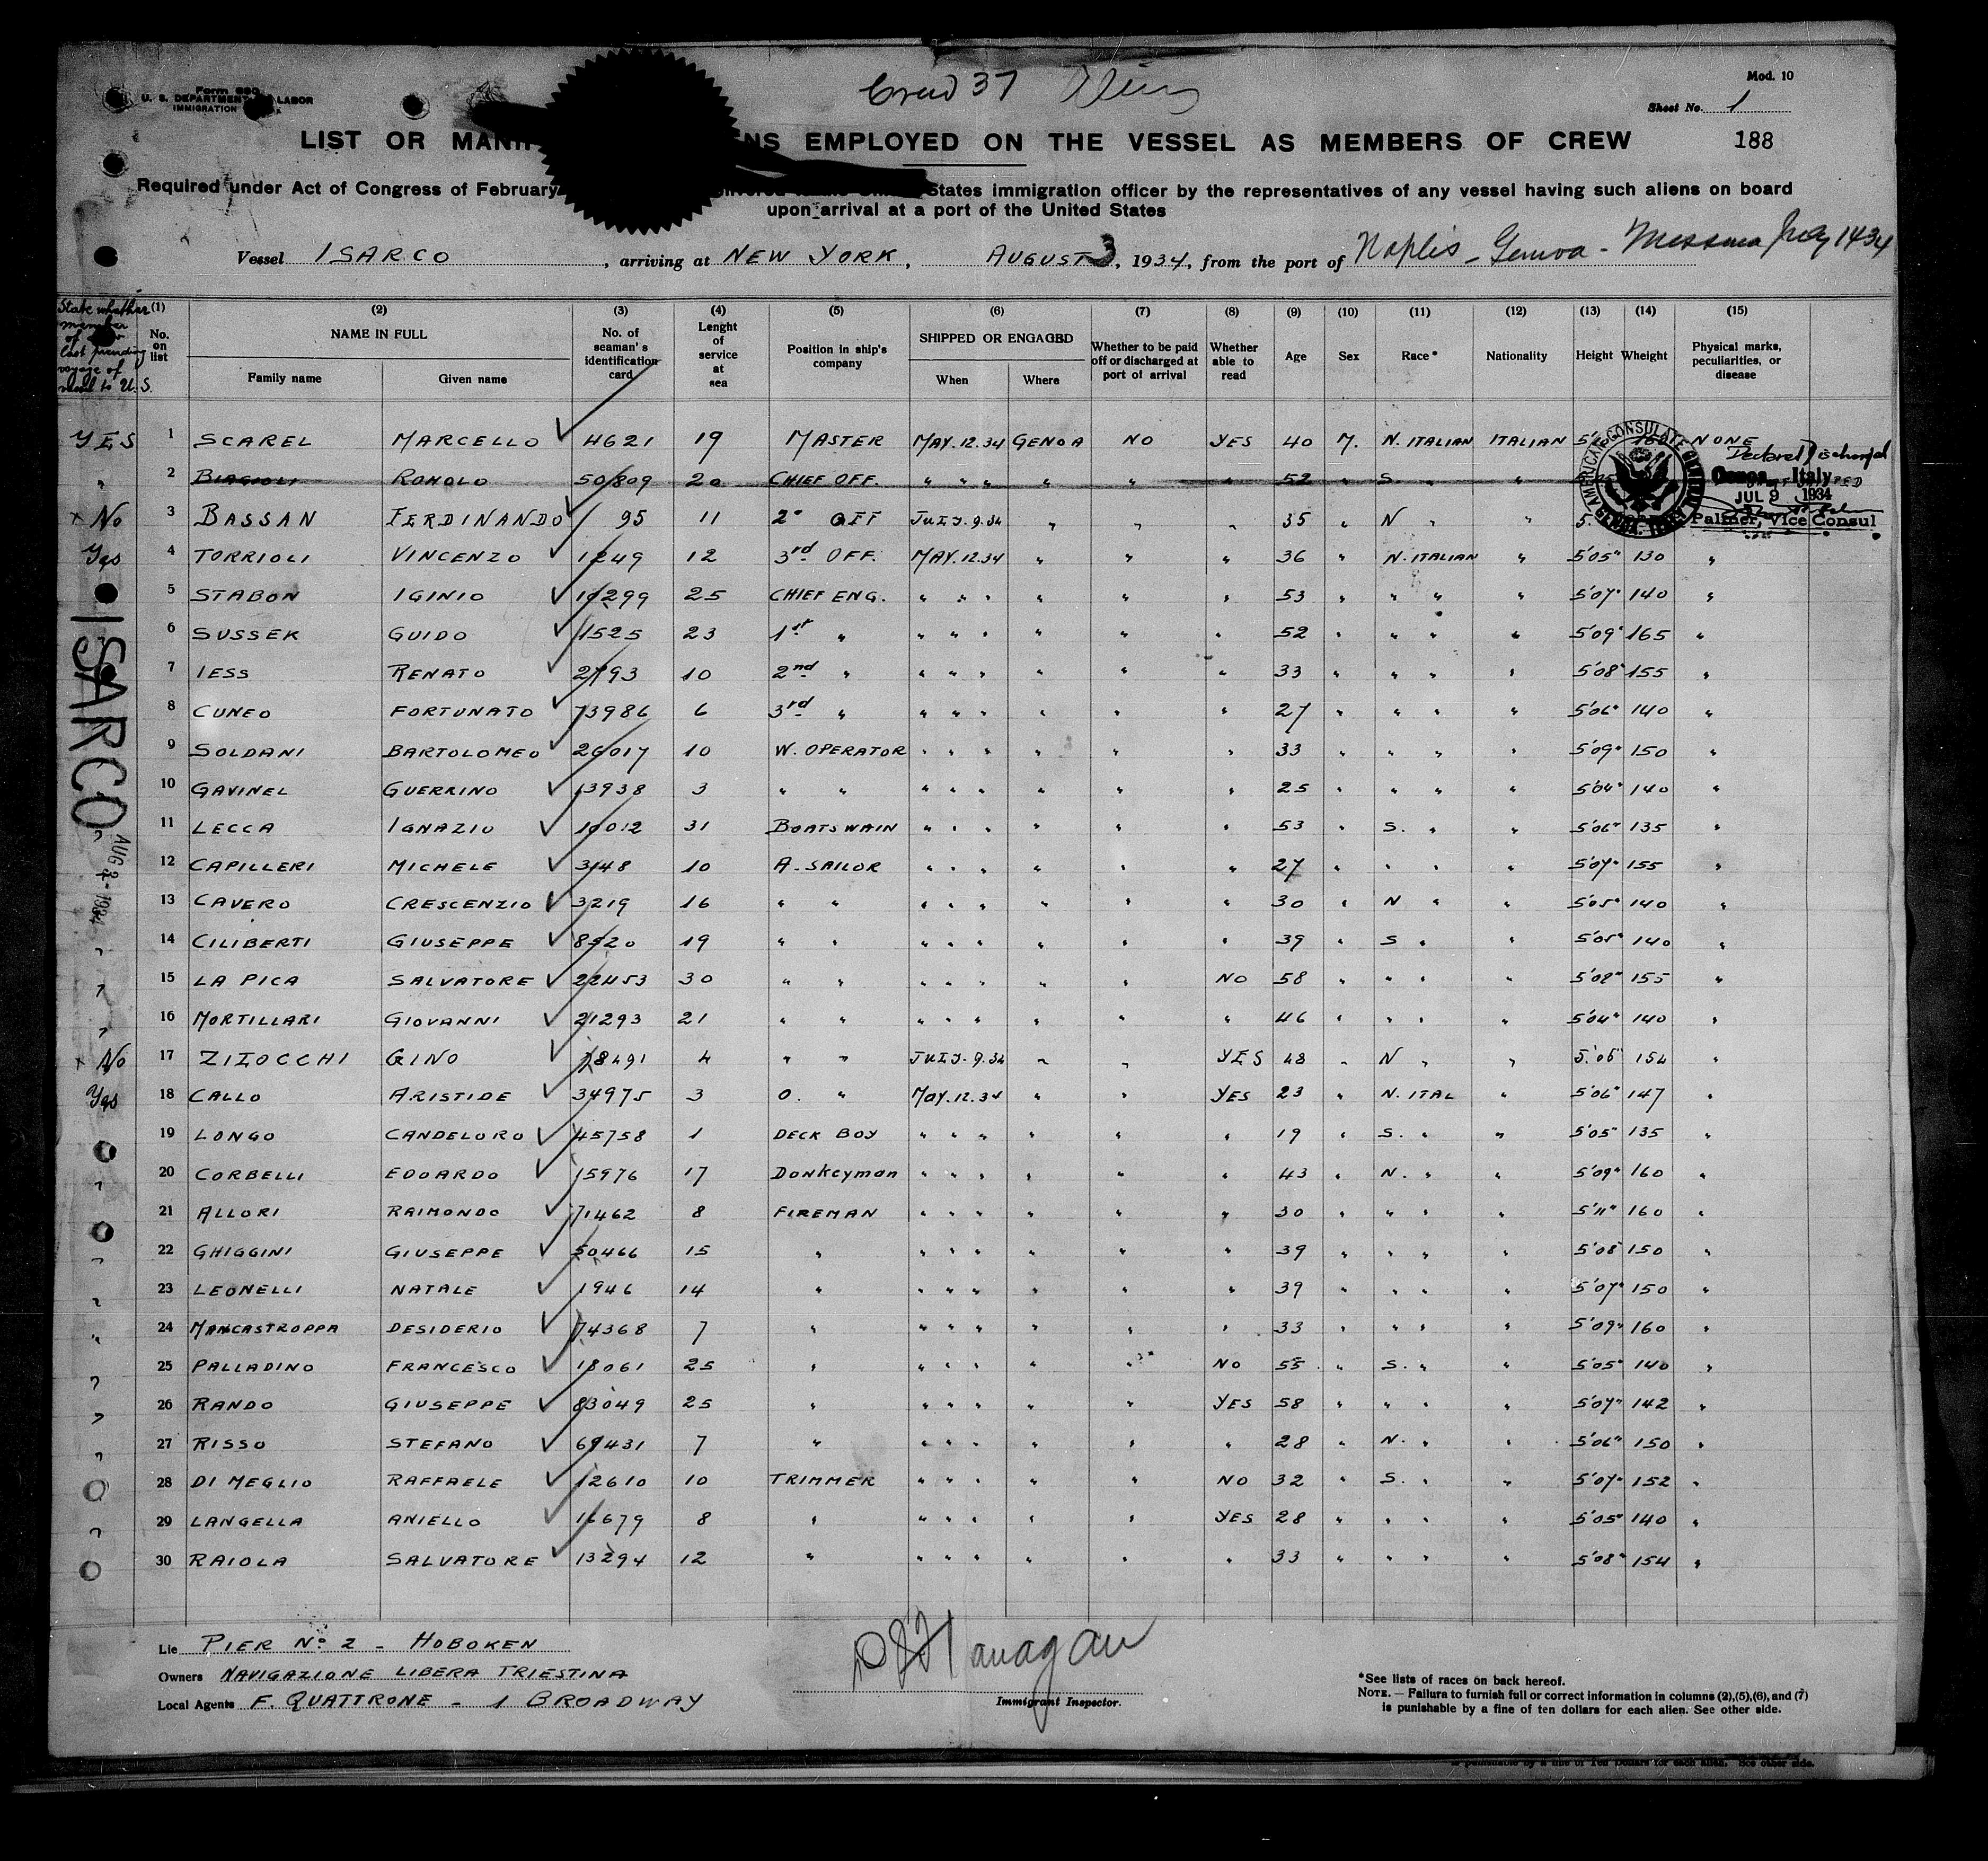 Crew 37 Aliens
Mod. 10
Form 680
U. S. DEPARTMENT LABOR
IMMIGRATION
Sheet No. 1
LIST OR MANIF NS EMPLOYED ON THE VESSEL AS MEMBERS OF CREW
188
Required under Act of Congress of February States immigration officer by the representatives of any vessel having such aliens on board
upon arrival at a port of the United States
Vessel ISARCO, arriving at NEW YORK, AUGUST 3, 1934, from the port of Naples - Genoa - Messina
State whether member of last preceding voyage of vessel to U.S.
(1) (2) (3) (4) (5) (6) (7) (8) (9) (10) (11) (12) (13) (14) (15)
No. on list
NAME IN FULL
Family name Given name
No. of seaman's identification card
Lenght of service at sea
Position in ship's company
SHIPPED OR ENGAGED
When Where
Whether to be paid off or discharged at port of arrival
Whether able to read
Age Sex Race* Nationality Height Wheight
Physical marks, peculiarities, or disease
YES 1 SCAREL MARCELLO 4621 19 MASTER MAY.12.34 GENOA NO YES 40 M. N. ITALIAN ITALIAN NONE
" 2 BIAGIOLI ROMOLO 50809 20 CHIEF OFF. " " " " " 52 " S. " "
x No 3 BASSAN FERDINANDO 95 11 2° OFF JULY.9.34 " " " 35 " N " "
Yes 4 TORRIOLI VINCENZO 1249 12 3rd OFF. MAY.12.34 " " " 36 " N. ITALIAN " 5'05" 130 "
5 STABON IGINIO 10299 25 CHIEF ENG. " " " " " " 53 " " " " 5'07" 140 "
6 SUSSEK GUIDO 1525 23 1st " " " " " " " 52 " " " " 5'09" 165 "
7 IESS RENATO 2793 10 2nd " " " " " " " 33 " " " " 5'08" 155 "
8 CUNEO FORTUNATO 73986 6 3rd " " " " " " " 27 " " " " 5'06" 140 "
9 SOLDANI BARTOLOMEO 26017 10 W. OPERATOR " " " " " " 33 " " " " 5'09" 150 "
10 GAVINEL GUERRINO 13938 3 " " " " " " " " 25 " " " " 5'04" 140 "
11 LECCA IGNAZIO 10012 31 BOATSWAIN " " " " " " 53 " S. " " 5'06" 135 "
12 CAPILLERI MICHELE 3148 10 A. SAILOR " " " " " " 27 " " " " 5'07" 155 "
13 CAVERO CRESCENZIO 3219 16 " " " " " " " " 30 " N " " 5'05" 140 "
" 14 CILIBERTI GIUSEPPE 8520 19 " " " " " " " " 39 " S " " 5'05" 140 "
" 15 LA PICA SALVATORE 22453 30 " " " " " " " NO 58 " " " " 5'02" 155 "
" 16 MORTILLARI GIOVANNI 21293 21 " " " " " " " " 46 " " " " 5'04" 140 "
x No 17 ZIZOCCHI GINO 78491 4 " " JULY.9.34 " " YES 48 " N " " 5'06 154 "
Yes 18 CALLO ARISTIDE 34975 3 O. " MAY.12.34 " " YES 23 " N. ITAL " 5'06" 147 "
19 LONGO CANDELORO 45758 1 DECK BOY " " " " " " 19 " S. " " 5'05" 135 "
" 20 CORBELLI EDOARDO 15976 17 Donkeyman " " " " " " 43 " N. " " 5'09" 160 "
21 ALLORI RAIMONDO 71462 8 FIREMAN " " " " " " 30 " " " " 5'11" 160 "
" 22 GHIGGINI GIUSEPPE 50466 15 " " " " " " " 39 " " " " 5'08 150 "
" 23 LEONELLI NATALE 1946 14 " " " " " " " 39 " " " " 5'07" 150 "
" 24 MANCASTROPPA DESIDERIO 74368 7 " " " " " " " 33 " " " " 5'09" 160 "
" 25 PALLADINO FRANCESCO 18061 25 " " " " " " NO 55 " S. " " 5'05" 140 "
" 26 RANDO GIUSEPPE 83049 25 " " " " " " YES 58 " " " " 5'07" 142 "
" 27 RISSO STEFANO 69431 7 " " " " " " " 28 " N. " " 5'06" 150 "
28 DI MEGLIO RAFFAELE 12610 10 TRIMMER " " " " " NO 32 " S. " " 5'07" 152 "
" 29 LANGELLA ANIELLO 16679 8 " " " " " " YES 28 " " " " 5'05" 140 "
30 RAIOLA SALVATORE 13294 12 " " " " " " " 33 " " " " 5'08" 154 "
AMERICAN CONSULATE GENERAL
Genoa, Italy
JUL 9 1934
Palmer, Vice Consul
ISARCO
AUG 2 - 1934
Lie PIER No 2 - HOBOKEN
Owners NAVIGAZIONE LIBERA TRIESTINA
Local Agents F. QUATTRONE - 1 BROADWAY
Flanagan
Immigrant Inspector.
*See lists of races on back hereof.
NOTE. — Failura to furnish full or correct information in columns (2),(5),(6), and (7)
is punishable by a fine of ten dollars for each alien. See other side.
is punishable by a fine of Ten Dollars for each alien. See other side.